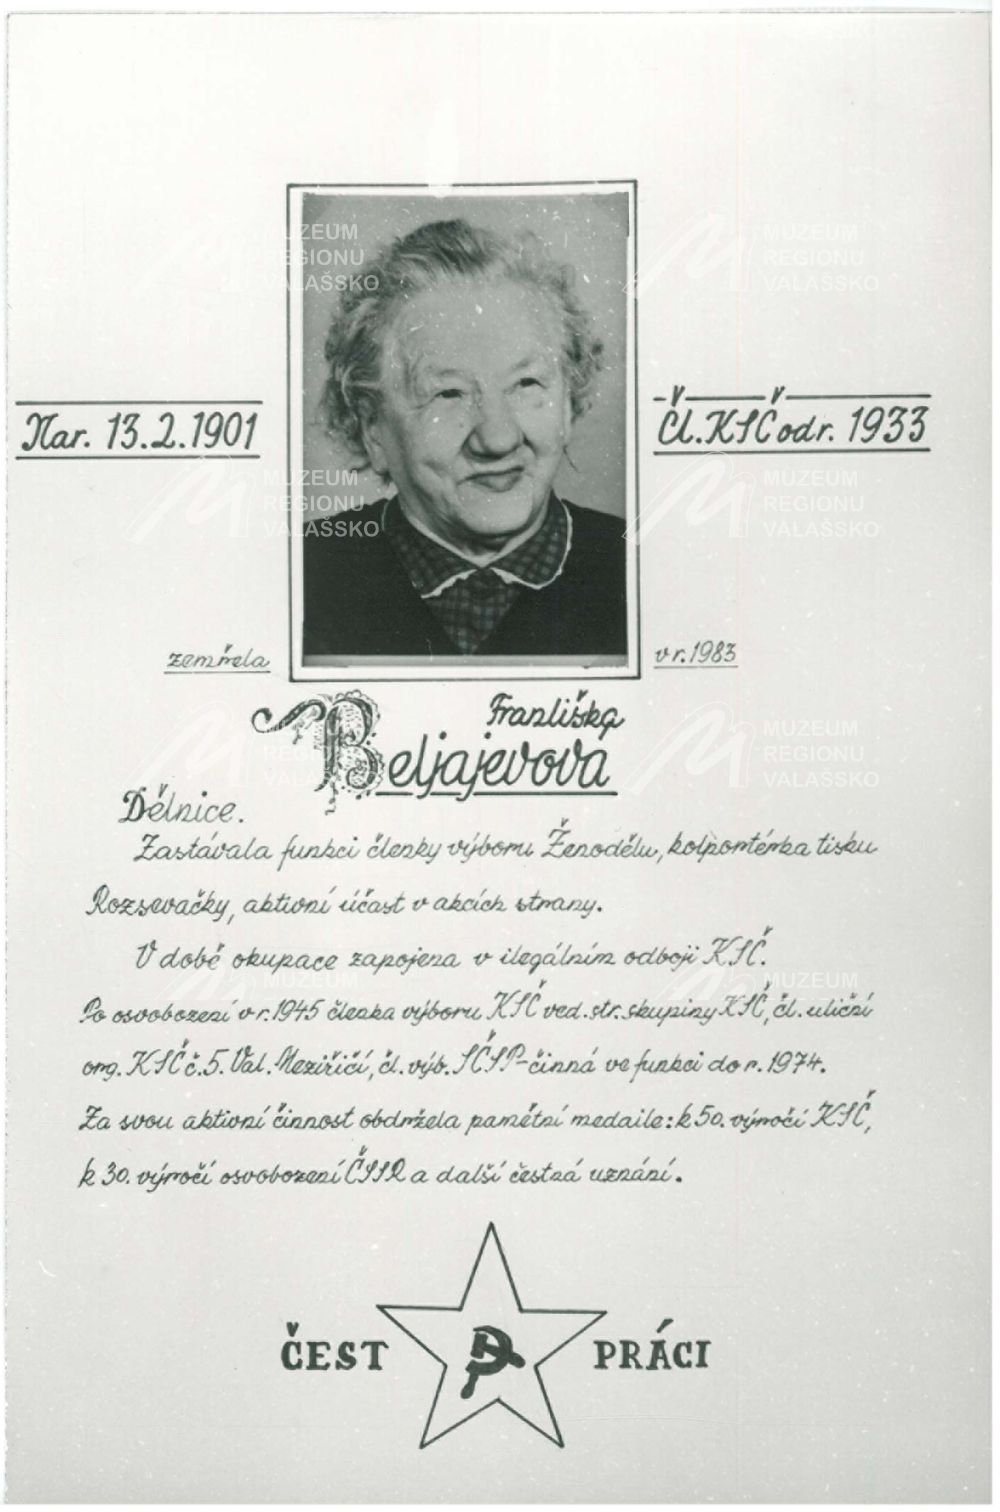 MUZEUM REGIONU VALAŠSKO
Nar. 13.2.1901
Čl. KSČ od r. 1933
zemřela
v r. 1983
Františka
Beljajevova
Dělnice.
Zastávala funkci členky výboru Ženodělu, kolportérka tisku
Rozsevačky, aktivní účast v akcích strany.
V době okupace zapojena v ilegálním odboji KSČ.
Po osvobození v r. 1945 členka výboru KSČ ved. str. skupiny KSČ, čl. uliční
org. KSČ č. 5. Val. Meziříčí, čl. výb. SČSP - činná ve funkci do r. 1974.
Za svou aktivní činnost obdržela pamětní medaile: k 50. výročí KSČ,
k 30. výročí osvobození ČSSR a další čestná uznání.
ČEST PRÁCI